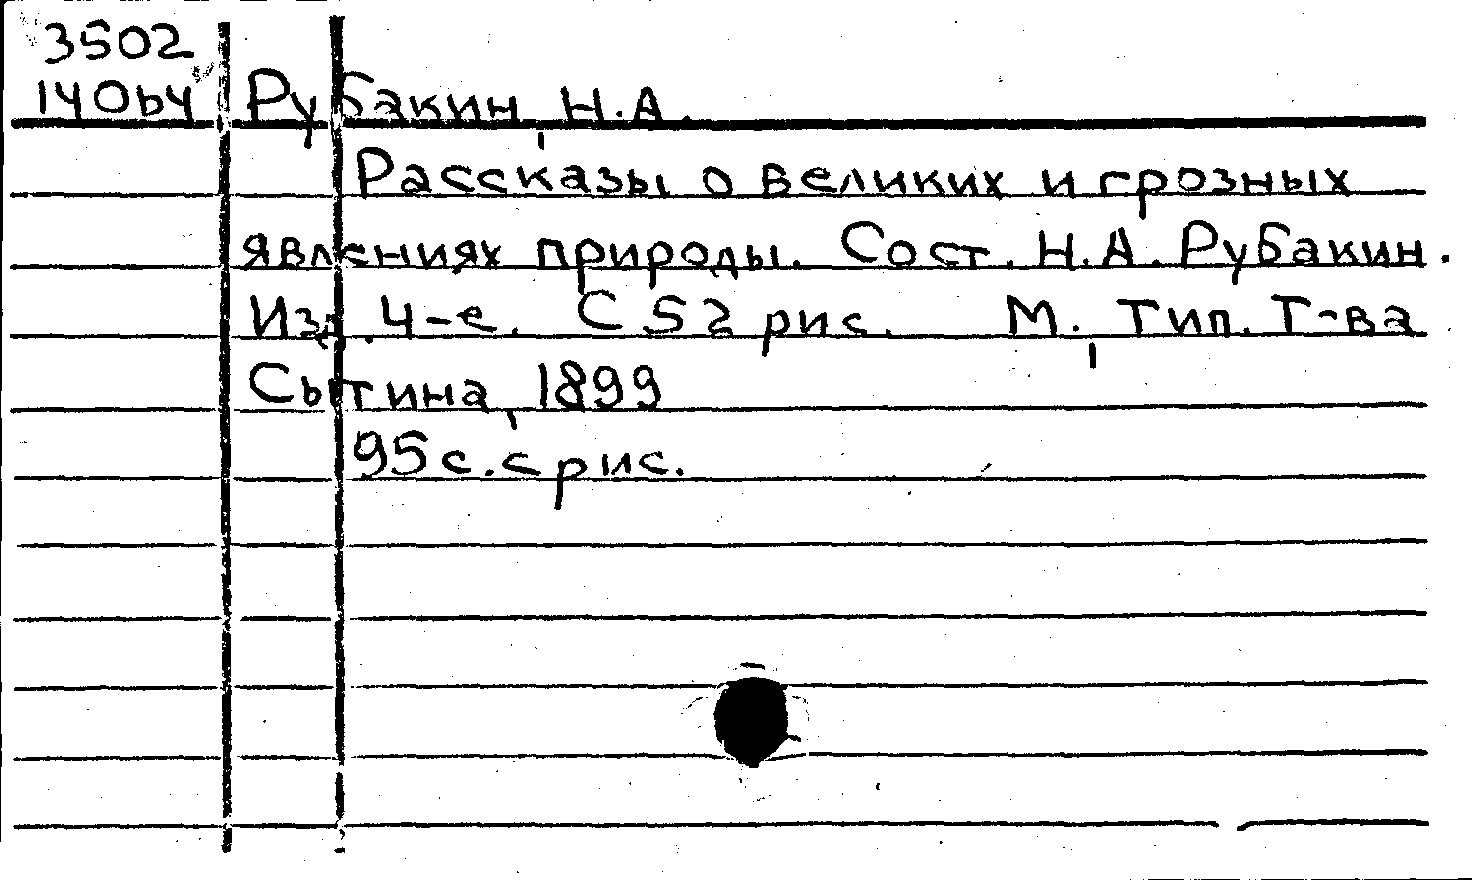 3502
14064
Рубакин, Н.А.
Рассказы о великих и грозных
явлениях природы. Сост. Н.А. Рубакин.
Изд. 4-е. С 52 рис. М., Тип. Т-ва
Сытина, 1899
95 с. с рис.